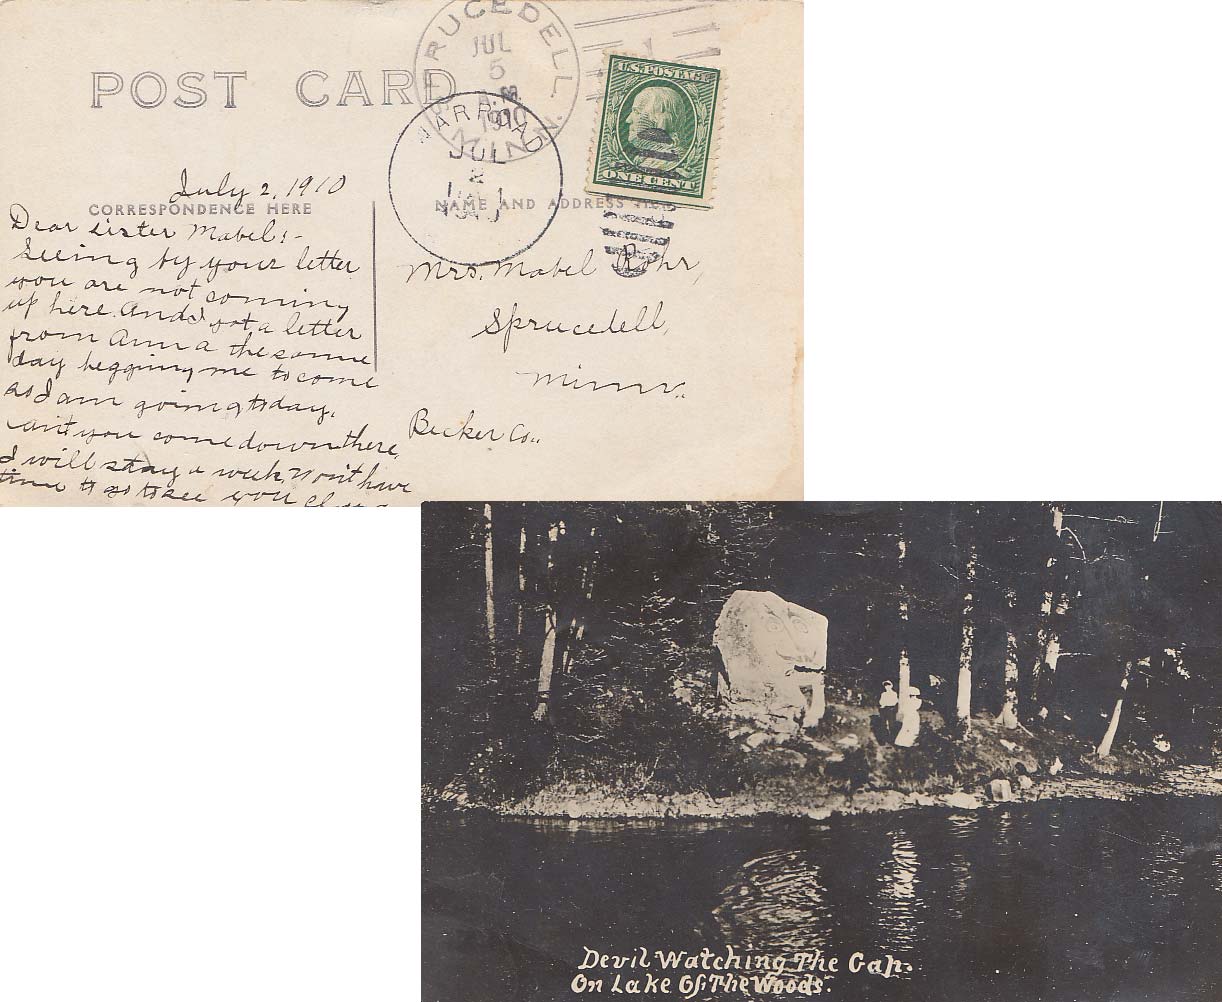 POST CARD
SPRUCEDELL
JUL
5
A.M.
1910
MINN
U.S. POSTAGE
ONE CENT
WARROAD
JUL
2
CORRESPONDENCE HERE
NAME AND ADDRESS
July 2, 1910
Dear Sister Mabel:-
Seeing by your letter
you are not coming
up here. And I got a letter
from Anna the same
day begging me to come
so I am going today.
can't you come down there,
I will stay a week. Won't have
time to go to see you
Mrs. Mabel Rohr,
Sprucedell,
Minn.
Becker Co..
Devil Watching The Gap.
On Lake Of The Woods.